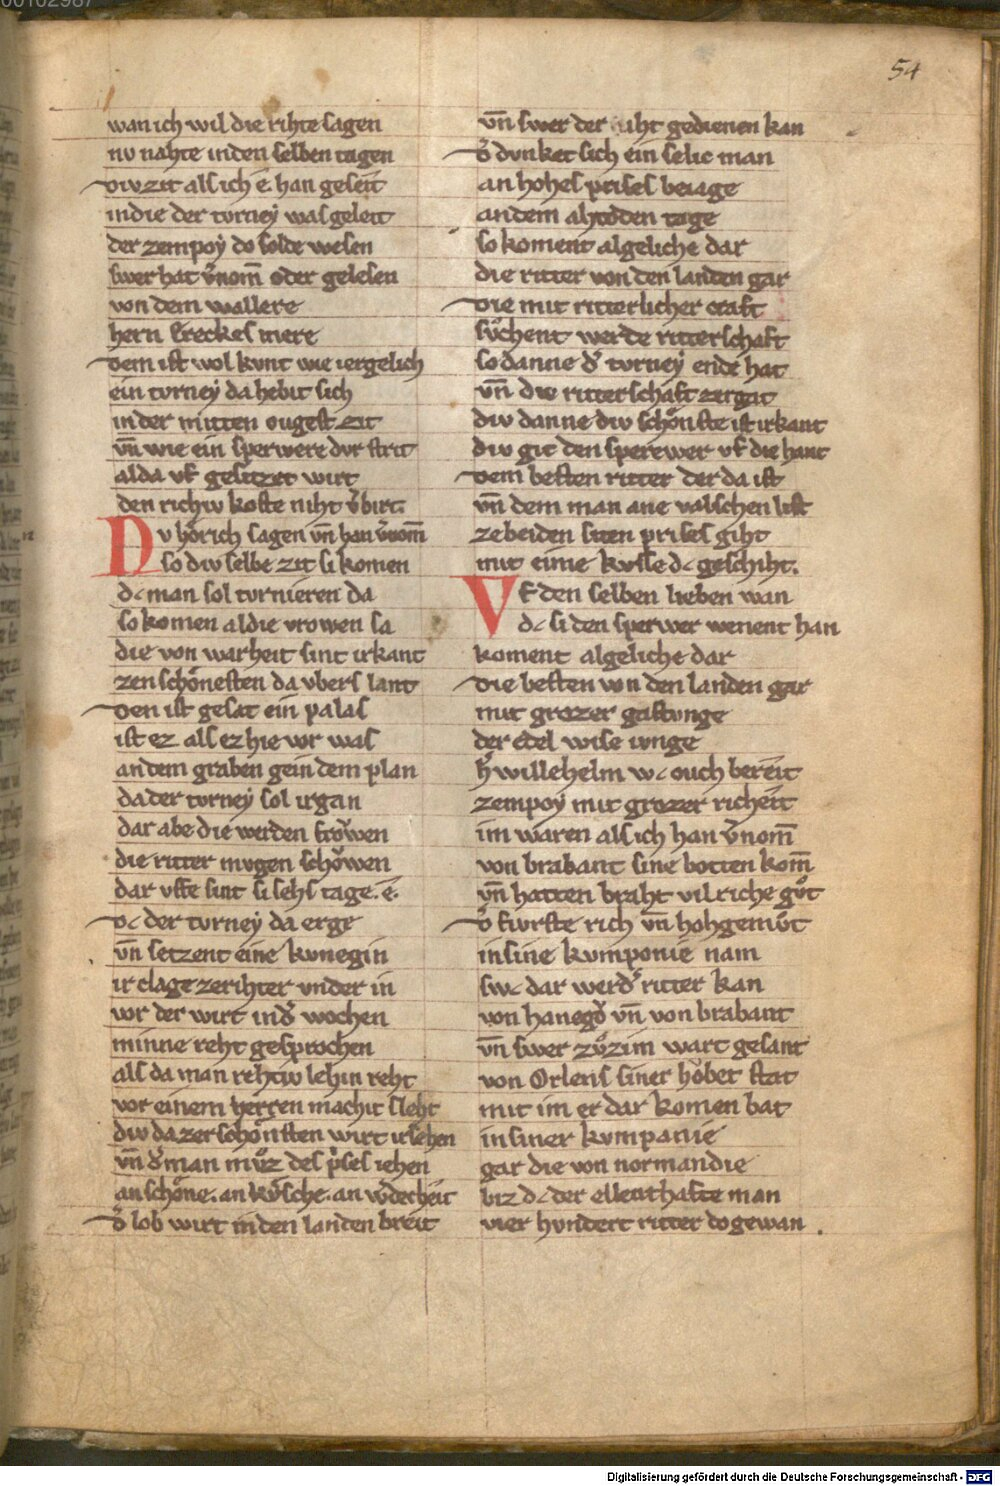 54
wan ich wil die rihte sagen
nv nahte inden selben tagen
div zit als ich e han geseit
indie der tvrney was geleit
der zempoy do solde wesen
swer hat v̄nom̄ oder gelesen
von dem wallere
hern Ereckes mere
dem ist wol kvnt wie iergelich
ein tvrney da hebit sich
in der mitten ougest zit
vn̄ wie ein sperwere dvr strit
alda vf gesetzet wirt
den richiv koste niht v̄birt.
Dv hoͤrich sagen vn̄ han v̄nom̄
so div selbe zit si komen
dc man sol tvrnieren da
so komen al die vrowen sa
die von warheit sint irkant
zen schoͤnesten da vbers lant
den ist gesat ein palas
ist ez als ez hie vor was
an dem graben gein dem plan
da der tvrney sol irgan
dar abe die werden froͮwen
die ritter mvgen schoͮwen
dar vffe sint si sehs tage. e.
dc der tvrney da erge
vn̄ setzent eine kvnegin
ir clage ze rihter vnder in
vor der wirt in dͤ wochen
minne reht gesprochen
als da man rehtiv lehin reht
vor einem herren machit sleht
div da zer schoͤnsten wirt irsehen
vn̄ dͤ man mvͦz des pͥses iehen
an schoͤne. an kvͤsche. an wdecheit
dͤ lob wirt in den landen breit
vn̄ swer der niht gedienen kan
dͤ dvnket sich ein selic man
an hohes prises beiage
an dem ahtoden tage
so koment algeliche dar
die ritter von den landen gar
die mit ritterlicher craft
svͦchent werde ritterschaft
so danne dͤ tvrney ende hat
vn̄ div ritterschaft zergat
div danne div schoͤnste ist irkant
div git den sperewer vf die hant
dem besten ritter der da ist
vn̄ dem man ane valschen list
ze beiden siten prises giht
mit eime kvsse dc geschiht.
Vf den selben lieben wan
dc si den sperwer wenent han
koment algeliche dar
die besten von den landen gar
mit grozer gastvnge
der edel wise ivnge
hͤ willehelm wc ouch bereit
zempoy mit grozer richeit
im waren als ich han v̄nom̄
von brabant sine botten kom̄
vn̄ hatten braht vil riche gvͦt
dͤ fvrste rich vn̄ hohgemvͦt
in sine kvmponie nam
swc dar werdͤ ritter kan
von hanegoͮ vn̄ von brabant
vn̄ swer zvͦzim wart gesant
von Orlens siner hoͮbet stat
mit im er dar komen bat
in siner kvmpanie
gar die von normandie
biz dc der ellenthafte man
vier hvndert ritter do gewan.
Digitalisierung gefördert durch die Deutsche Forschungsgemeinschaft - DFG